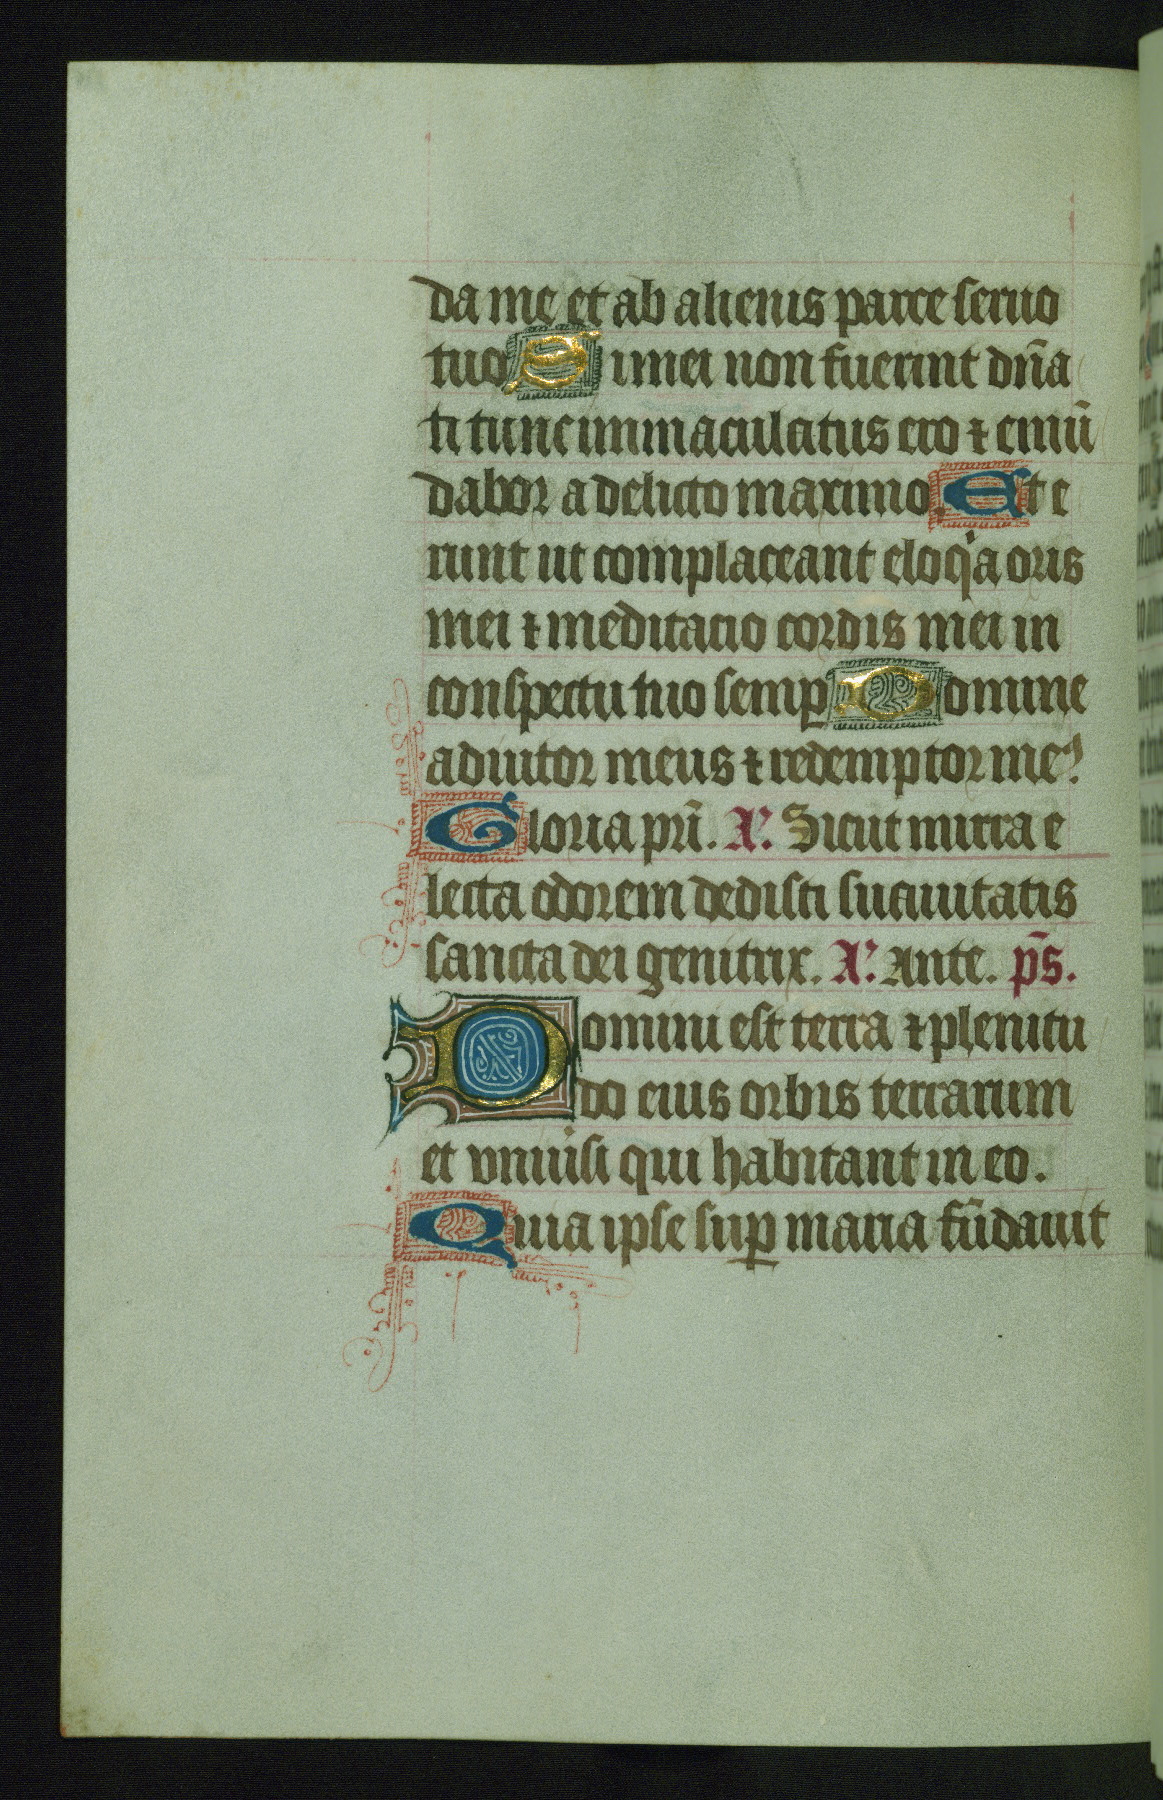 da me et ab alienis parce seruo
tuo Si mei non fuerint dn̄a
ti tunc immaculatus ero ⁊ emū
dabor a delicto maximo. Et e
runt ut complaceant eloqͥa oris
mei ⁊ meditatio cordis mei in
conspectu tuo semꝑ Domine
adiutor meus ⁊ redemptor meꝰ
Gloria pr̄i. Aͥ. Sicut mirra e
lecta odorem dedisti suauitatis
sancta dei genitrix. Aͥ. Ante. p̄s.
Domini est terra ⁊ plenitu
do eius orbis terrarum
et vniuͥsi qui habitant in eo.
Quia ipse suꝑ maria fūdauit